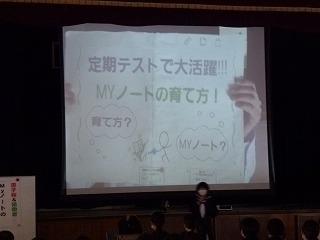 定期テストで大活躍!!!
MYノートの育て方!
育て方?
MYノート?
MYノートの